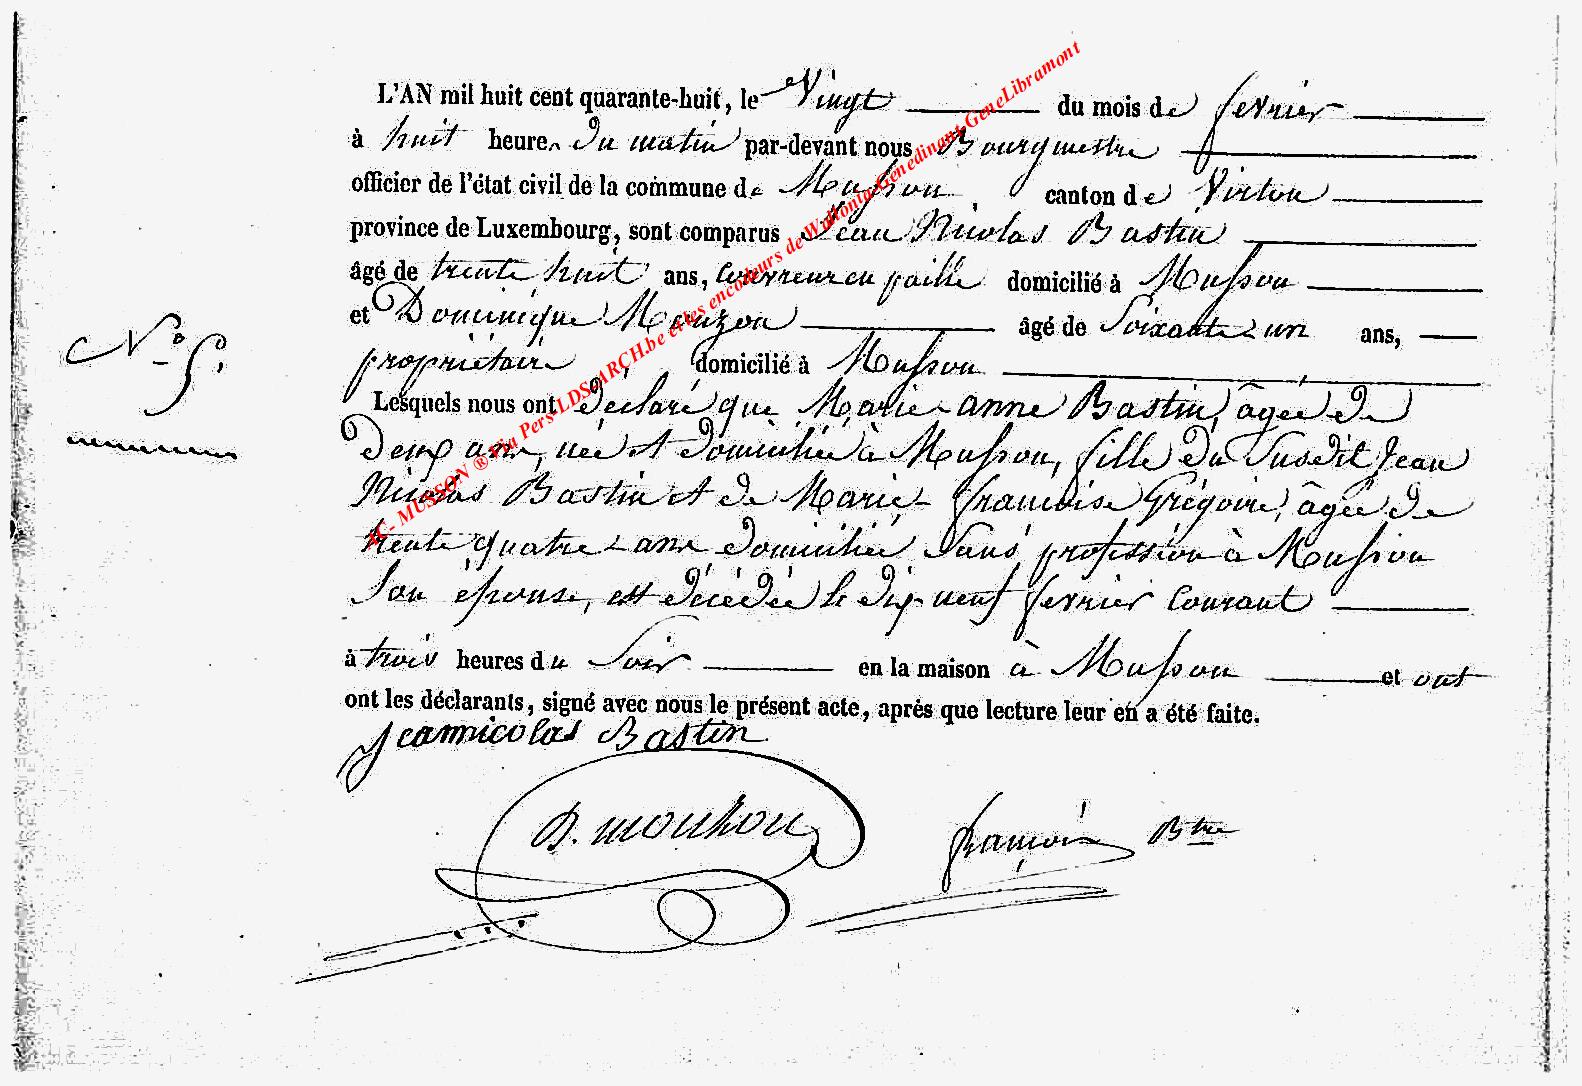 L'AN mil huit cent quarante-huit, le Vingt du mois de fevrier
à huit heures du matin par-devant nous Bourgmestre
officier de l'état civil de la commune de Musson canton de Virton
province de Luxembourg, sont comparus Jean Nicolas Bastin
âgé de trente huit ans, couvreur en paille domicilié à Musson
et Dominique Mouzon âgé de Soixante-un ans,
propriétaire domicilié à Musson
N° 5.
Lesquels nous ont déclaré que Marie-anne Bastin, âgée de
deux ans, née et domiciliée à Musson, fille du Susdit Jean
Nicolas Bastin et de Marie-françoise Grégoire, âgée de
trente quatre-ans domiciliée, Sans profession à Musson
Son épouse, est décédée le dix neuf fevrier courant
à trois heures du Soir en la maison à Musson et ont
ont les déclarants, signé avec nous le présent acte, après que lecture leur en a été faite.
Jeannicolas Bastin
D. mouzon
françois Btre
AC- MUSSON ® Via Pers-LDS-ARCH.be et les encodeurs de Wallonia-Genedinant-GeneLibramont